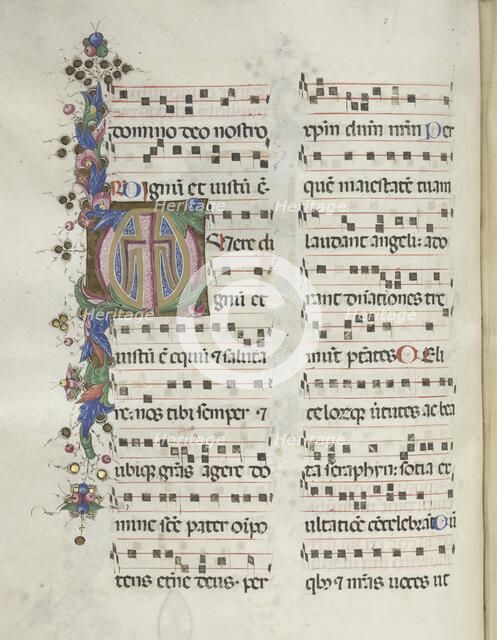 domino deo nostro
Dignū et iustū ē·
Vere di
gnū et
iustū ē equū ⁊ saluta
re: nos tibi semper ⁊
ubiqꝫ grās agere do
mine scē pater oīpo
tens etne deus· per
xp̄m dn̄m nr̄m Per
quē maiestatē tuam
laudant angeli: ado
rant dn̄ationes tre
mūt ptātes Celi
celorūqꝫ v̄tutes ac bea
ta seraphyn: sotia ex
ultatiōe cōcelebrāt Cū
qbꝫ ⁊ nr̄as uoces ut